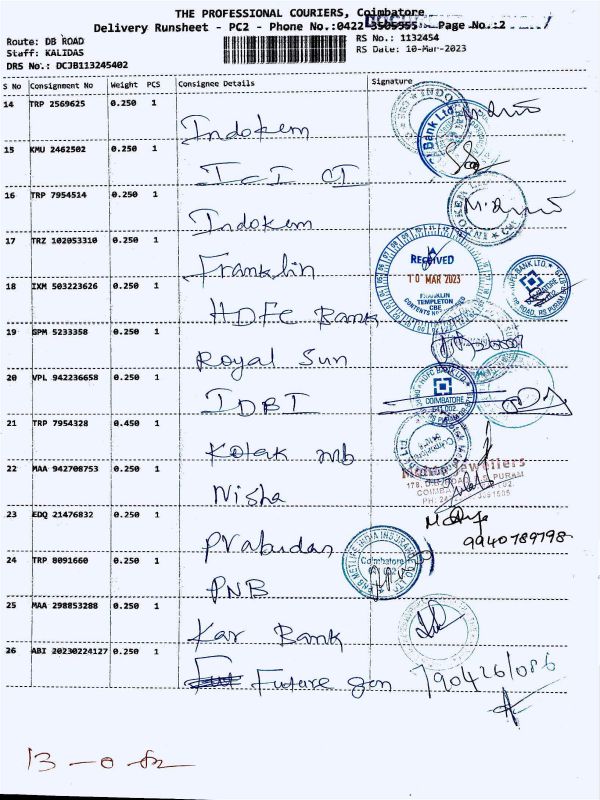 THE PROFESSIONAL COURIERS, Coimbatore
Delivery Runsheet - PC2 - Phone No.:0422 3505555 Page No.:2
Route: DB ROAD RS No.: 1132454
Staff: KALIDAS RS Date: 10-Mar-2023
DRS No.: DCJB113245402
S No Consignment No Weight PCS Consignee Details Signature
14 TRP 2569625 0.250 1
Indokem
15 KMU 2462502 0.250 1
ICICI
16 TRP 7954514 0.250 1
Indokem
17 TRZ 102053310 0.250 1
Franklin
RECEIVED
10 MAR 2023
FRANKLIN
TEMPLETON
CBE
18 IXM 503223626 0.250 1
HDFC Bank
19 GPM 5233358 0.250 1
Royal Sun
20 VPL 942236658 0.250 1
IDBI
HDFC BANK LTD.
COIMBATORE
21 TRP 7954328 0.450 1
Kotak mb
22 MAA 942708753 0.250 1
Nisha
Jewellers
23 EDQ 21476832 0.250 1
Prabudan
9940789798
24 TRP 8091660 0.250 1
PNB
PNB METLIFE INDIA INSURANCE CO LTD
Coimbatore
25 MAA 298853288 0.250 1
Kar Bank
26 ABI 20230224127 0.250 1
Future gen 790426/086
13 - 0